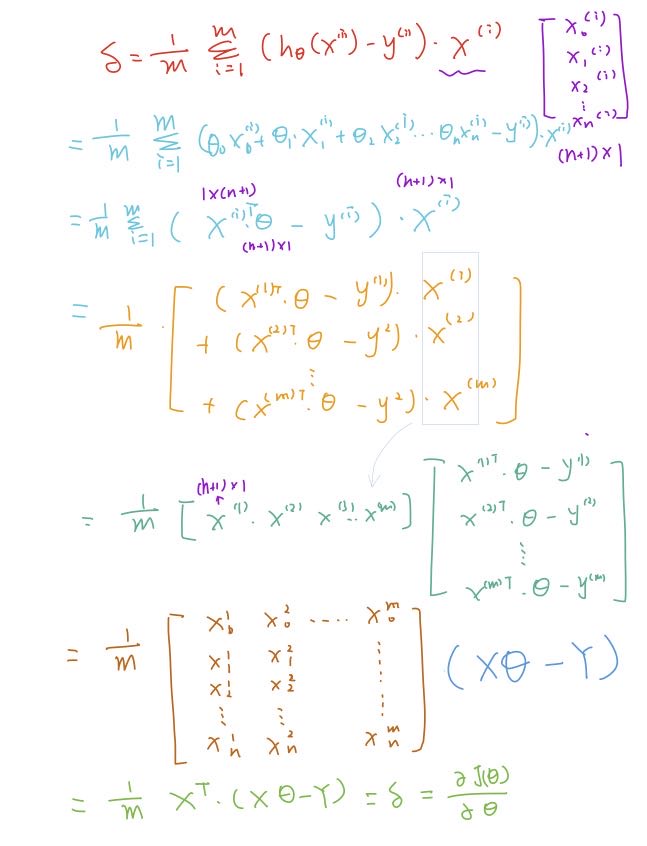 δ = 1/m Σ_{i=1}^{m} (h_θ(x^{(i)}) - y^{(i)}) · x^{(i)} [x_0^{(i)} x_1^{(i)} x_2^{(i)} ⋮ x_n^{(i)}]
(n+1)×1
= 1/m Σ_{i=1}^{m} (θ_0 x_0^{(i)} + θ_1· x_1^{(i)} + θ_2 x_2^{(i)} ... θ_n x_n^{(i)} - y^{(i)}) · x^{(i)}
1×(n+1) (n+1)×1
= 1/m Σ_{i=1}^{m} ( x^{(i)T} · θ - y^{(i)} ) · x^{(i)}
(n+1)×1
= 1/m · [ (x^{(1)T} · θ - y^{(1)}) · x^{(1)}
+ (x^{(2)T} · θ - y^2) · x^{(2)}
⋮
+ (x^{(m)T} · θ - y^2) · x^{(m)} ]
(n+1)×1
= 1/m [x^{(1)} · x^{(2)} x^{(3)} ... x^{(m)}] [ x^{(1)T} · θ - y^{(1)}
x^{(2)T} · θ - y^{(2)}
⋮
x^{(m)T} · θ - y^{(m)} ]
= 1/m [ x_0^1 x_0^2 ····· x_0^m
x_1^1 x_1^2 ⋮
x_2^1 x_2^2 ⋮
⋮ ⋮ ⋮
x_n^1 x_n^2 x_n^m ] (Xθ - Y)
= 1/m X^T · (Xθ - Y) = δ = ∂J(θ)/∂θ